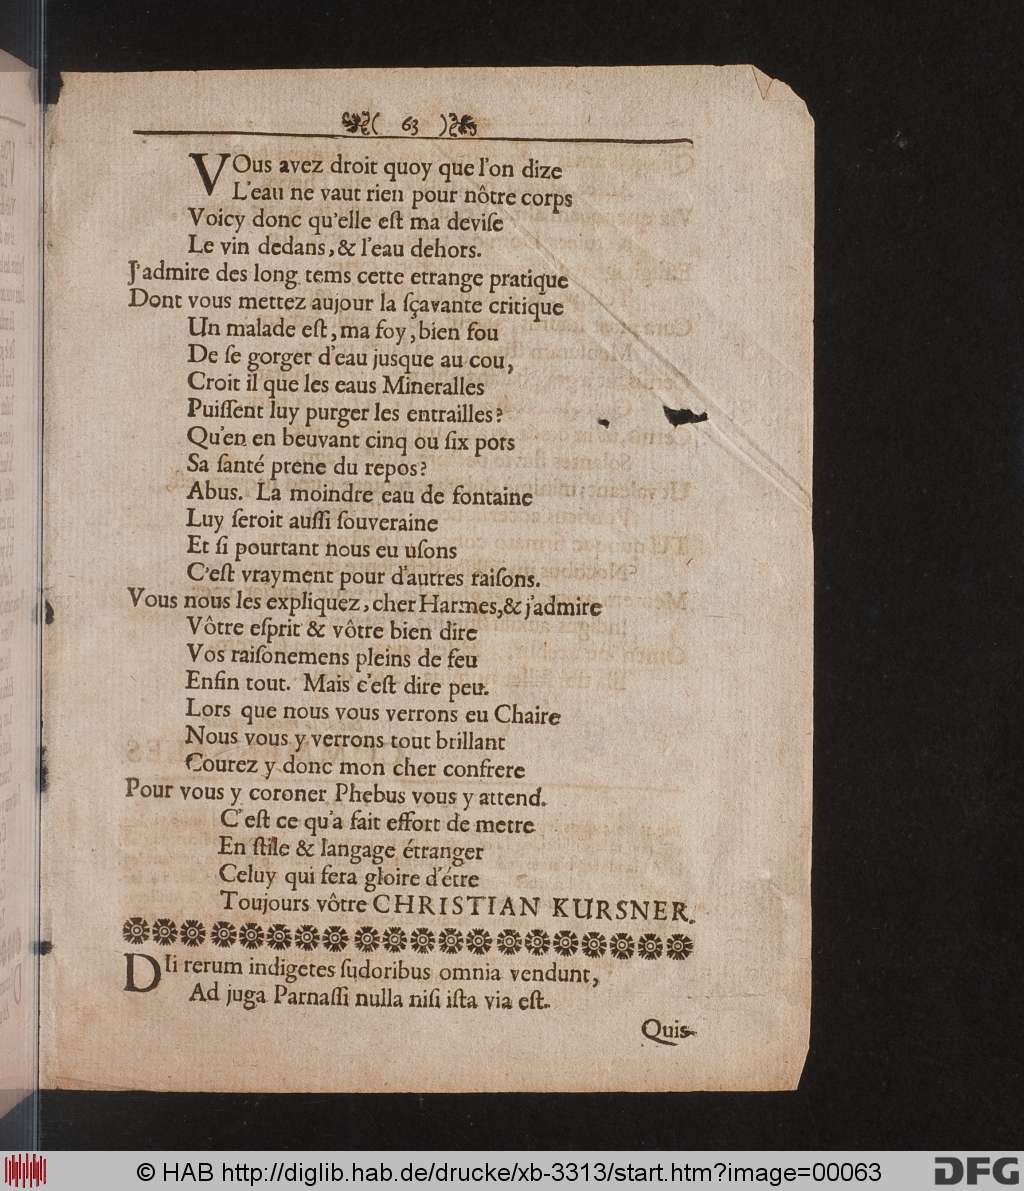 ( 63 )
VOus avez droit quoy que l'on dize
L'eau ne vaut rien pour nôtre corps
Voicy donc qu'elle eſt ma deviſe
Le vin dedans, & l'eau dehors.
J'admire des long tems cette etrange pratique
Dont vous mettez aujour la ſçavante critique
Un malade eſt, ma foy, bien fou
De ſe gorger d'eau jusque au cou,
Croit il que les eaus Mineralles
Puiſſent luy purger les entrailles?
Qu'en en beuvant cinq ou ſix pots
Sa ſanté prene du repos?
Abus. La moindre eau de fontaine
Luy ſeroit auſſi ſouveraine
Et ſi pourtant nous eu uſons
C'eſt vrayment pour d'autres raiſons.
Vous nous les expliquez, cher Harmes, & j'admire
Vôtre eſprit & vôtre bien dire
Vos raiſonemens pleins de feu
Enfin tout. Mais c'eſt dire peu.
Lors que nous vous verrons eu Chaire
Nous vous y verrons tout brillant
Courez y donc mon cher confrere
Pour vous y coroner Phebus vous y attend.
C'eſt ce qu'a fait effort de metre
En ſtile & langage étranger
Celuy qui fera gloire d'étre
Toujours vôtre CHRISTIAN KURSNER.
DIi rerum indigetes ſudoribus omnia vendunt,
Ad juga Parnaſſi nulla niſi iſta via eſt.
Quis
© HAB http://diglib.hab.de/drucke/xb-3313/start.htm?image=00063
DFG